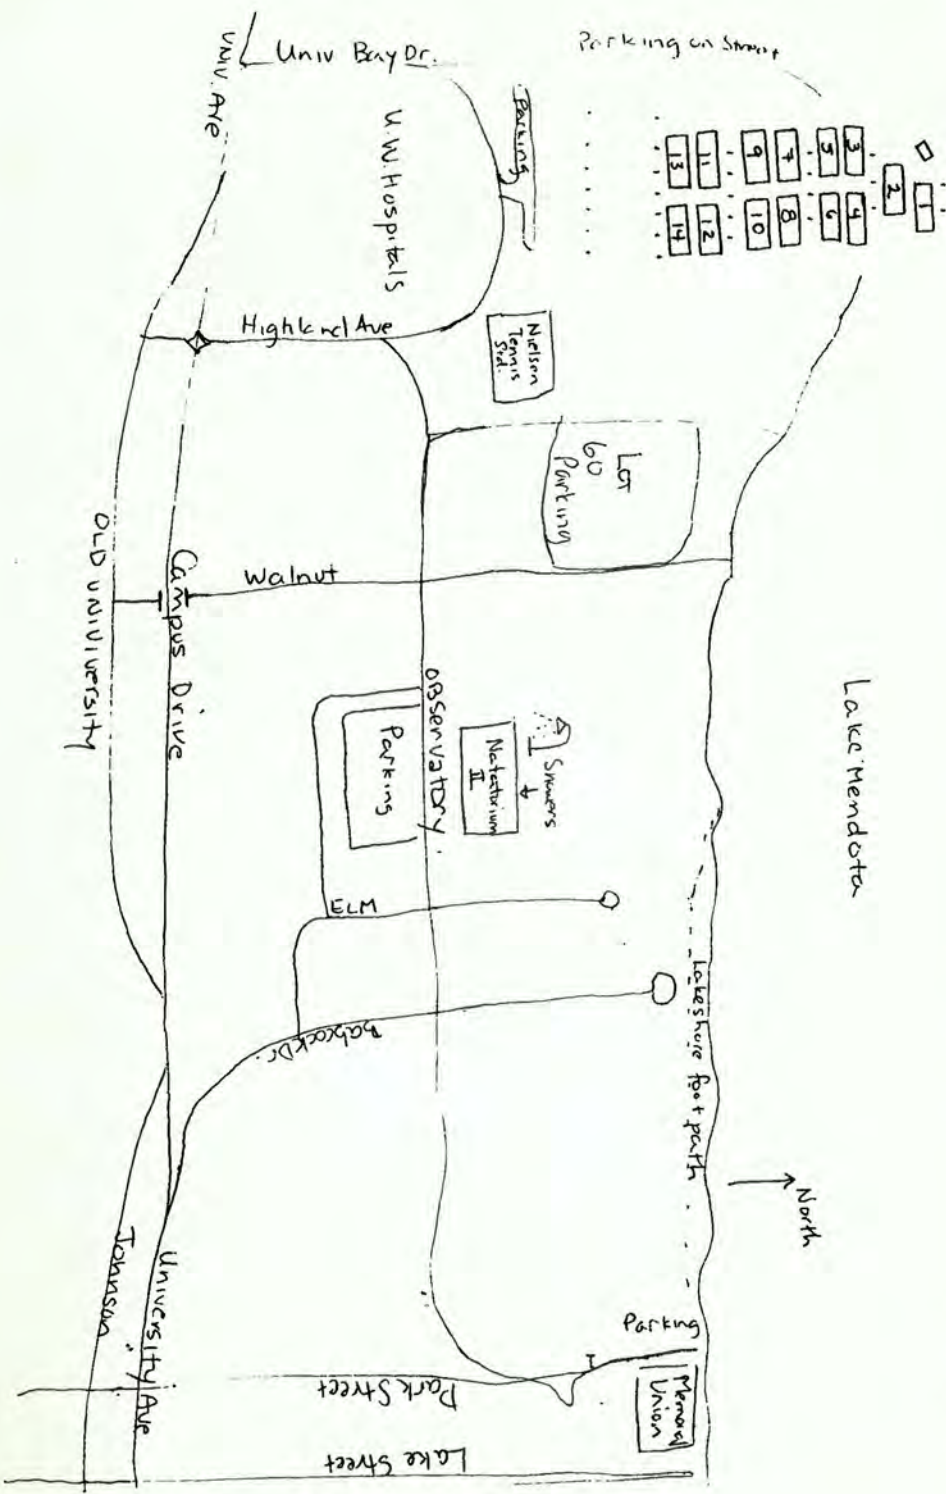 Parking on Street
Univ Bay Dr.
UNIV. Ave
U.W. Hospitals
Parking
1
2
3
4
5
6
7
8
9
10
11
12
13
14
Highland Ave
Nielsen
Tennis
Std.
Lot
60
Parking
Walnut
Campus Drive
OLD UNIVIVERSITY
Lake Mendota
OBSERVATORY
Parking
Natatorium
II
Showers
ELM
Babcock Dr.
Lakeshore foot path
North
Johnson
University Ave
Parking
Park Street
Memorial
Union
Lake Street